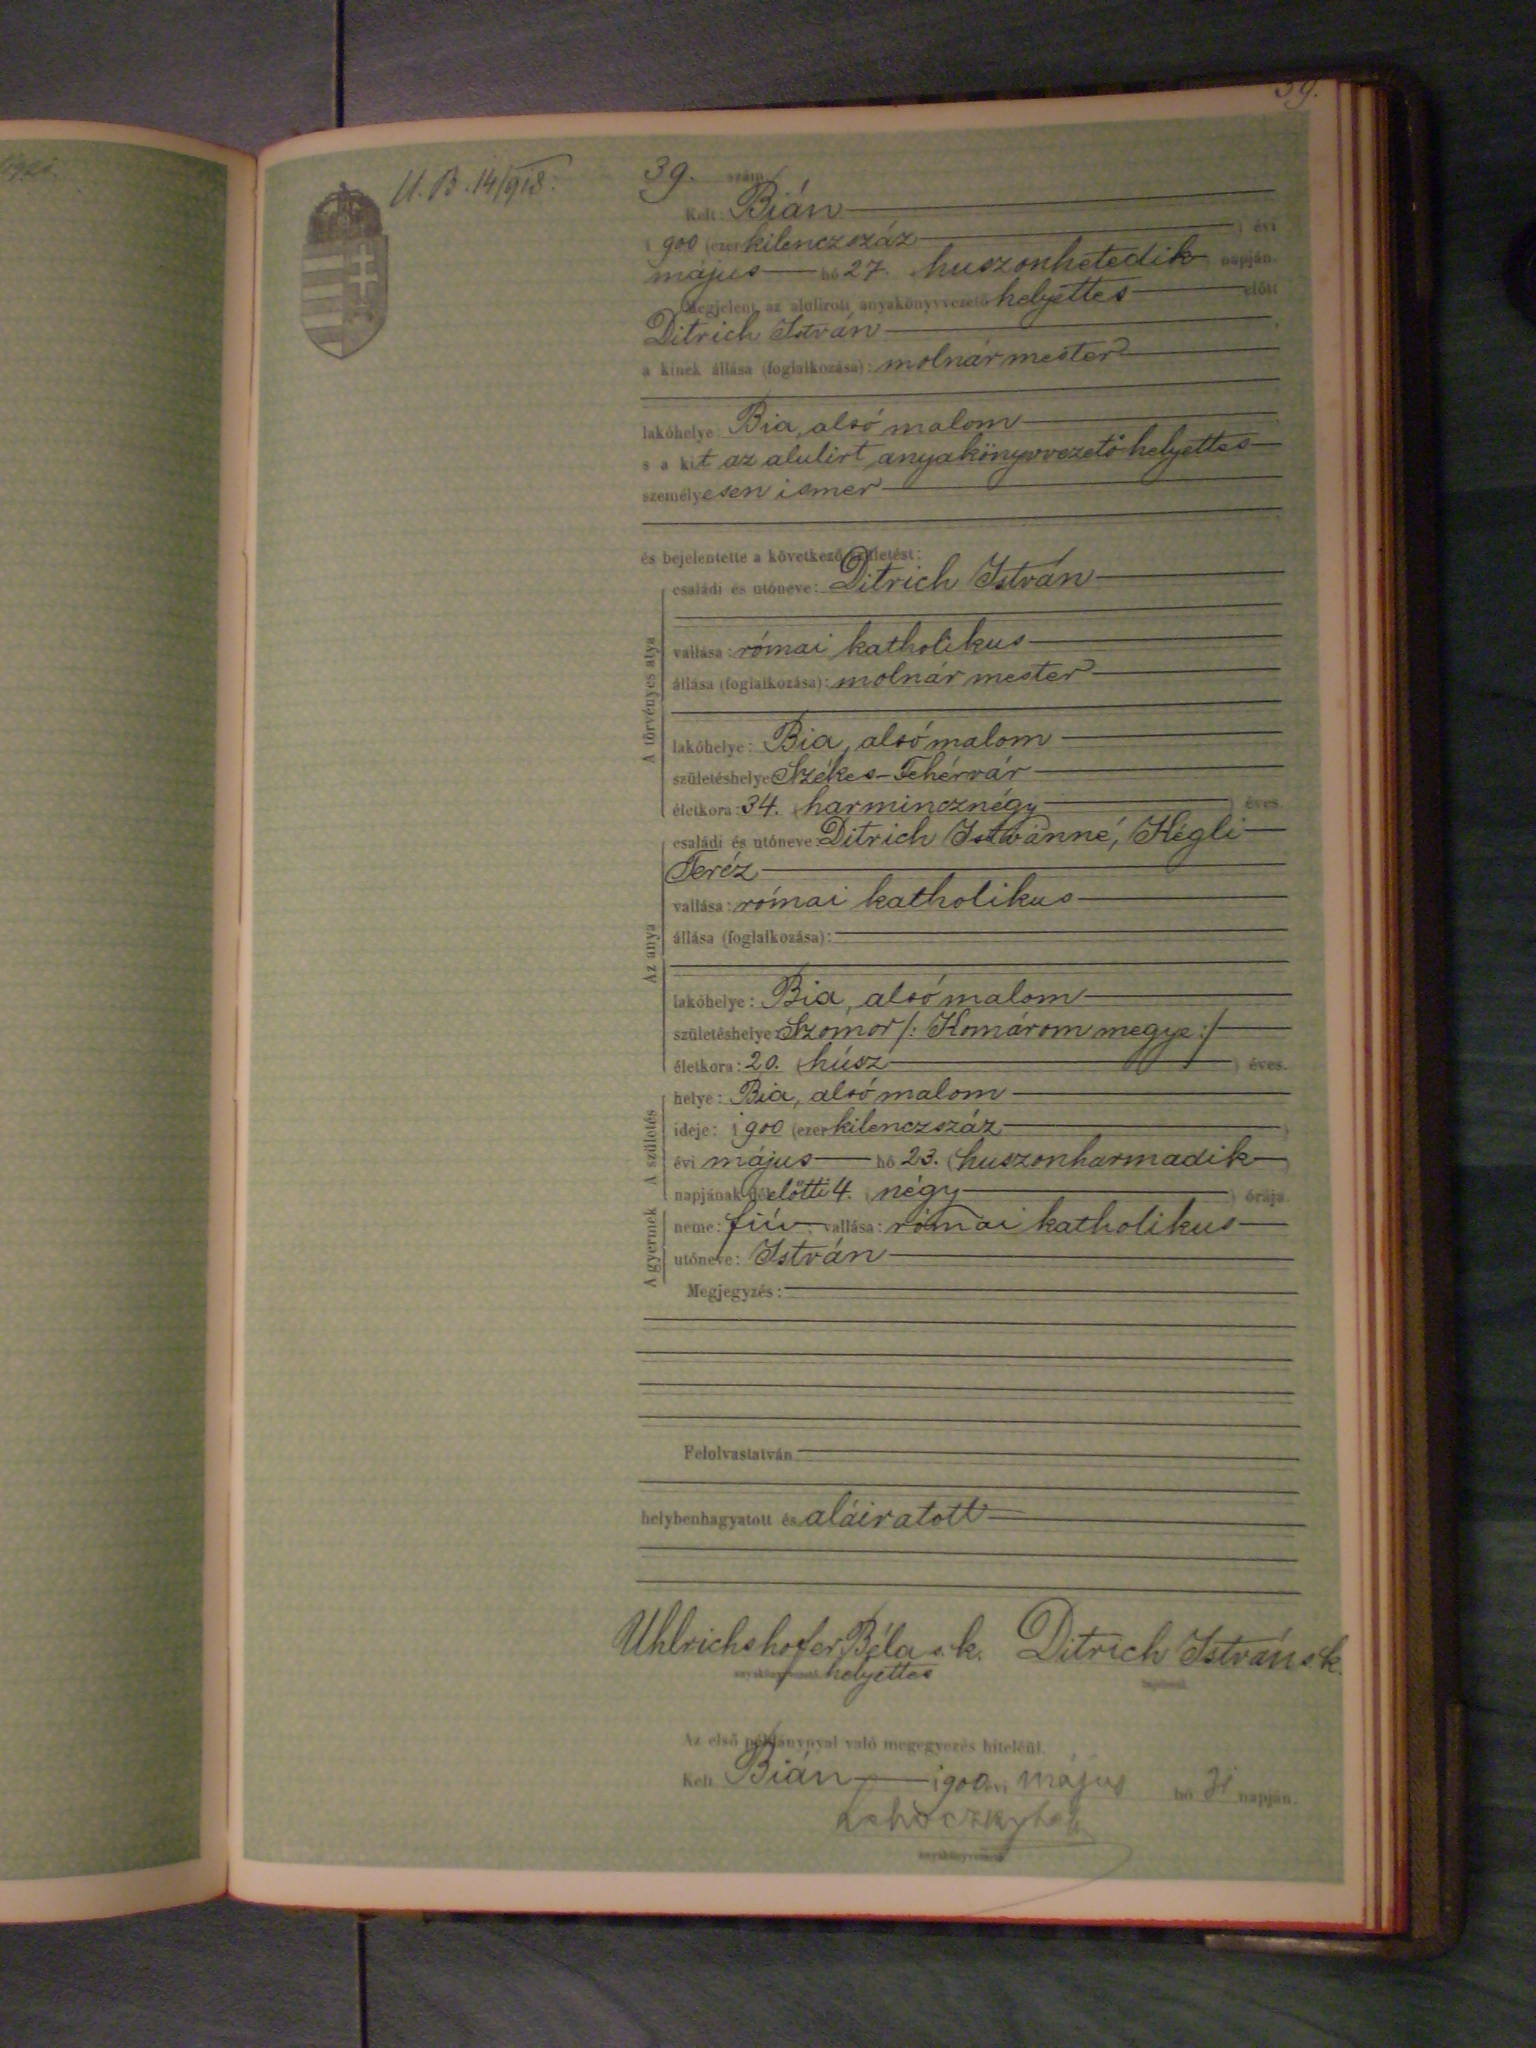 39.
U. B. 14/918.
39. szám
Kelt: Bián
1900 (ezer kilenczszáz ) évi
május hó 27. (huszonhetedik) napján.
Megjelent az alulirott anyakönyvvezető helyettes előtt
Ditrich István
a kinek állása (foglalkozása): molnármester
lakóhelye: Bia, alsó malom
s a kit az alulirt anyakönyvvezető helyettes
személyesen ismer
és bejelentette a következő születést:
A törvényes atya
családi és utóneve: Ditrich István
vallása: római katholikus
állása (foglalkozása): molnár mester
lakóhelye: Bia, alsó malom
születéshelye: Székes-Fehérvár
életkora: 34. (harmincznégy ) éves
Az anya
családi és utóneve: Ditrich Istvánné, Kégli
Teréz
vallása: római katholikus
állása (foglalkozása):
lakóhelye: Bia, alsó malom
születéshelye: Szomor /: Komárom megye :/
életkora: 20. (húsz ) éves.
A születés
helye: Bia, alsó malom
ideje: 1900 (ezer kilenczszáz )
évi május hó 23. (huszonharmadik )
napjának dél előtti 4. (négy ) órája.
A gyermek
neme: fiú vallása: római katholikus
utóneve: István
Megjegyzés:
Felolvastatván
helybenhagyatott és aláiratott
Uhlrichshofer Béla s. k. Ditrich István s.k.
anyakönyvvezető helyettes bejelentő
Az első példánynyal való megegyezés hiteléül.
Kelt Bián 1900 évi május hó 31 napján.
anyakönyvvezető